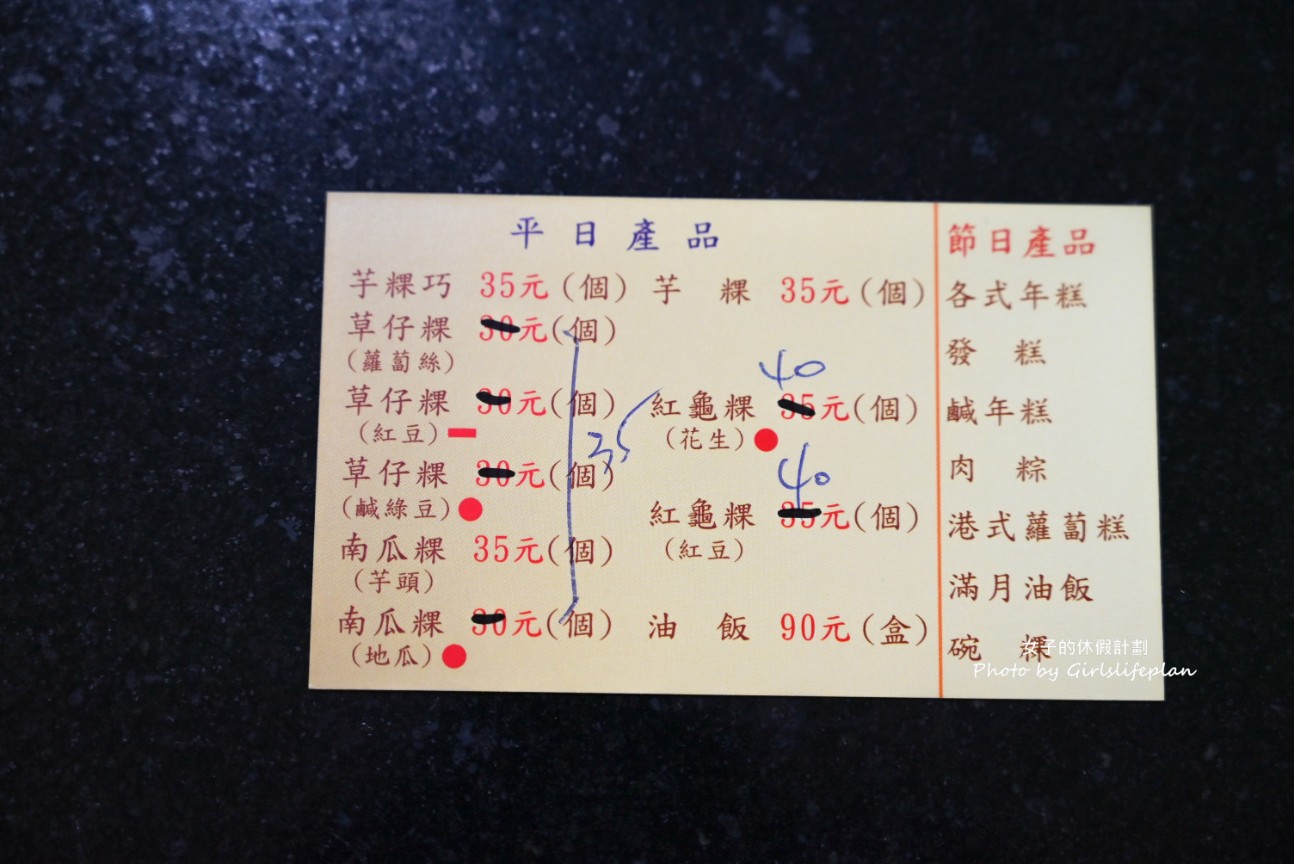 平日產品
芋粿巧 35元(個)
草仔粿 30元(個)
(蘿蔔絲)
草仔粿 30元(個)
(紅豆)
草仔粿 30元(個)
(鹹綠豆)
南瓜粿 35元(個)
(芋頭)
南瓜粿 30元(個)
(地瓜)
35
芋 粿 35元(個)
40
紅龜粿 35元(個)
(花生)
40
紅龜粿 35元(個)
(紅豆)
油 飯 90元(盒)
節日產品
各式年糕
發 糕
鹹年糕
肉 粽
港式蘿蔔糕
滿月油飯
碗 粿
女子的休假計劃
Photo by Girlslifeplan